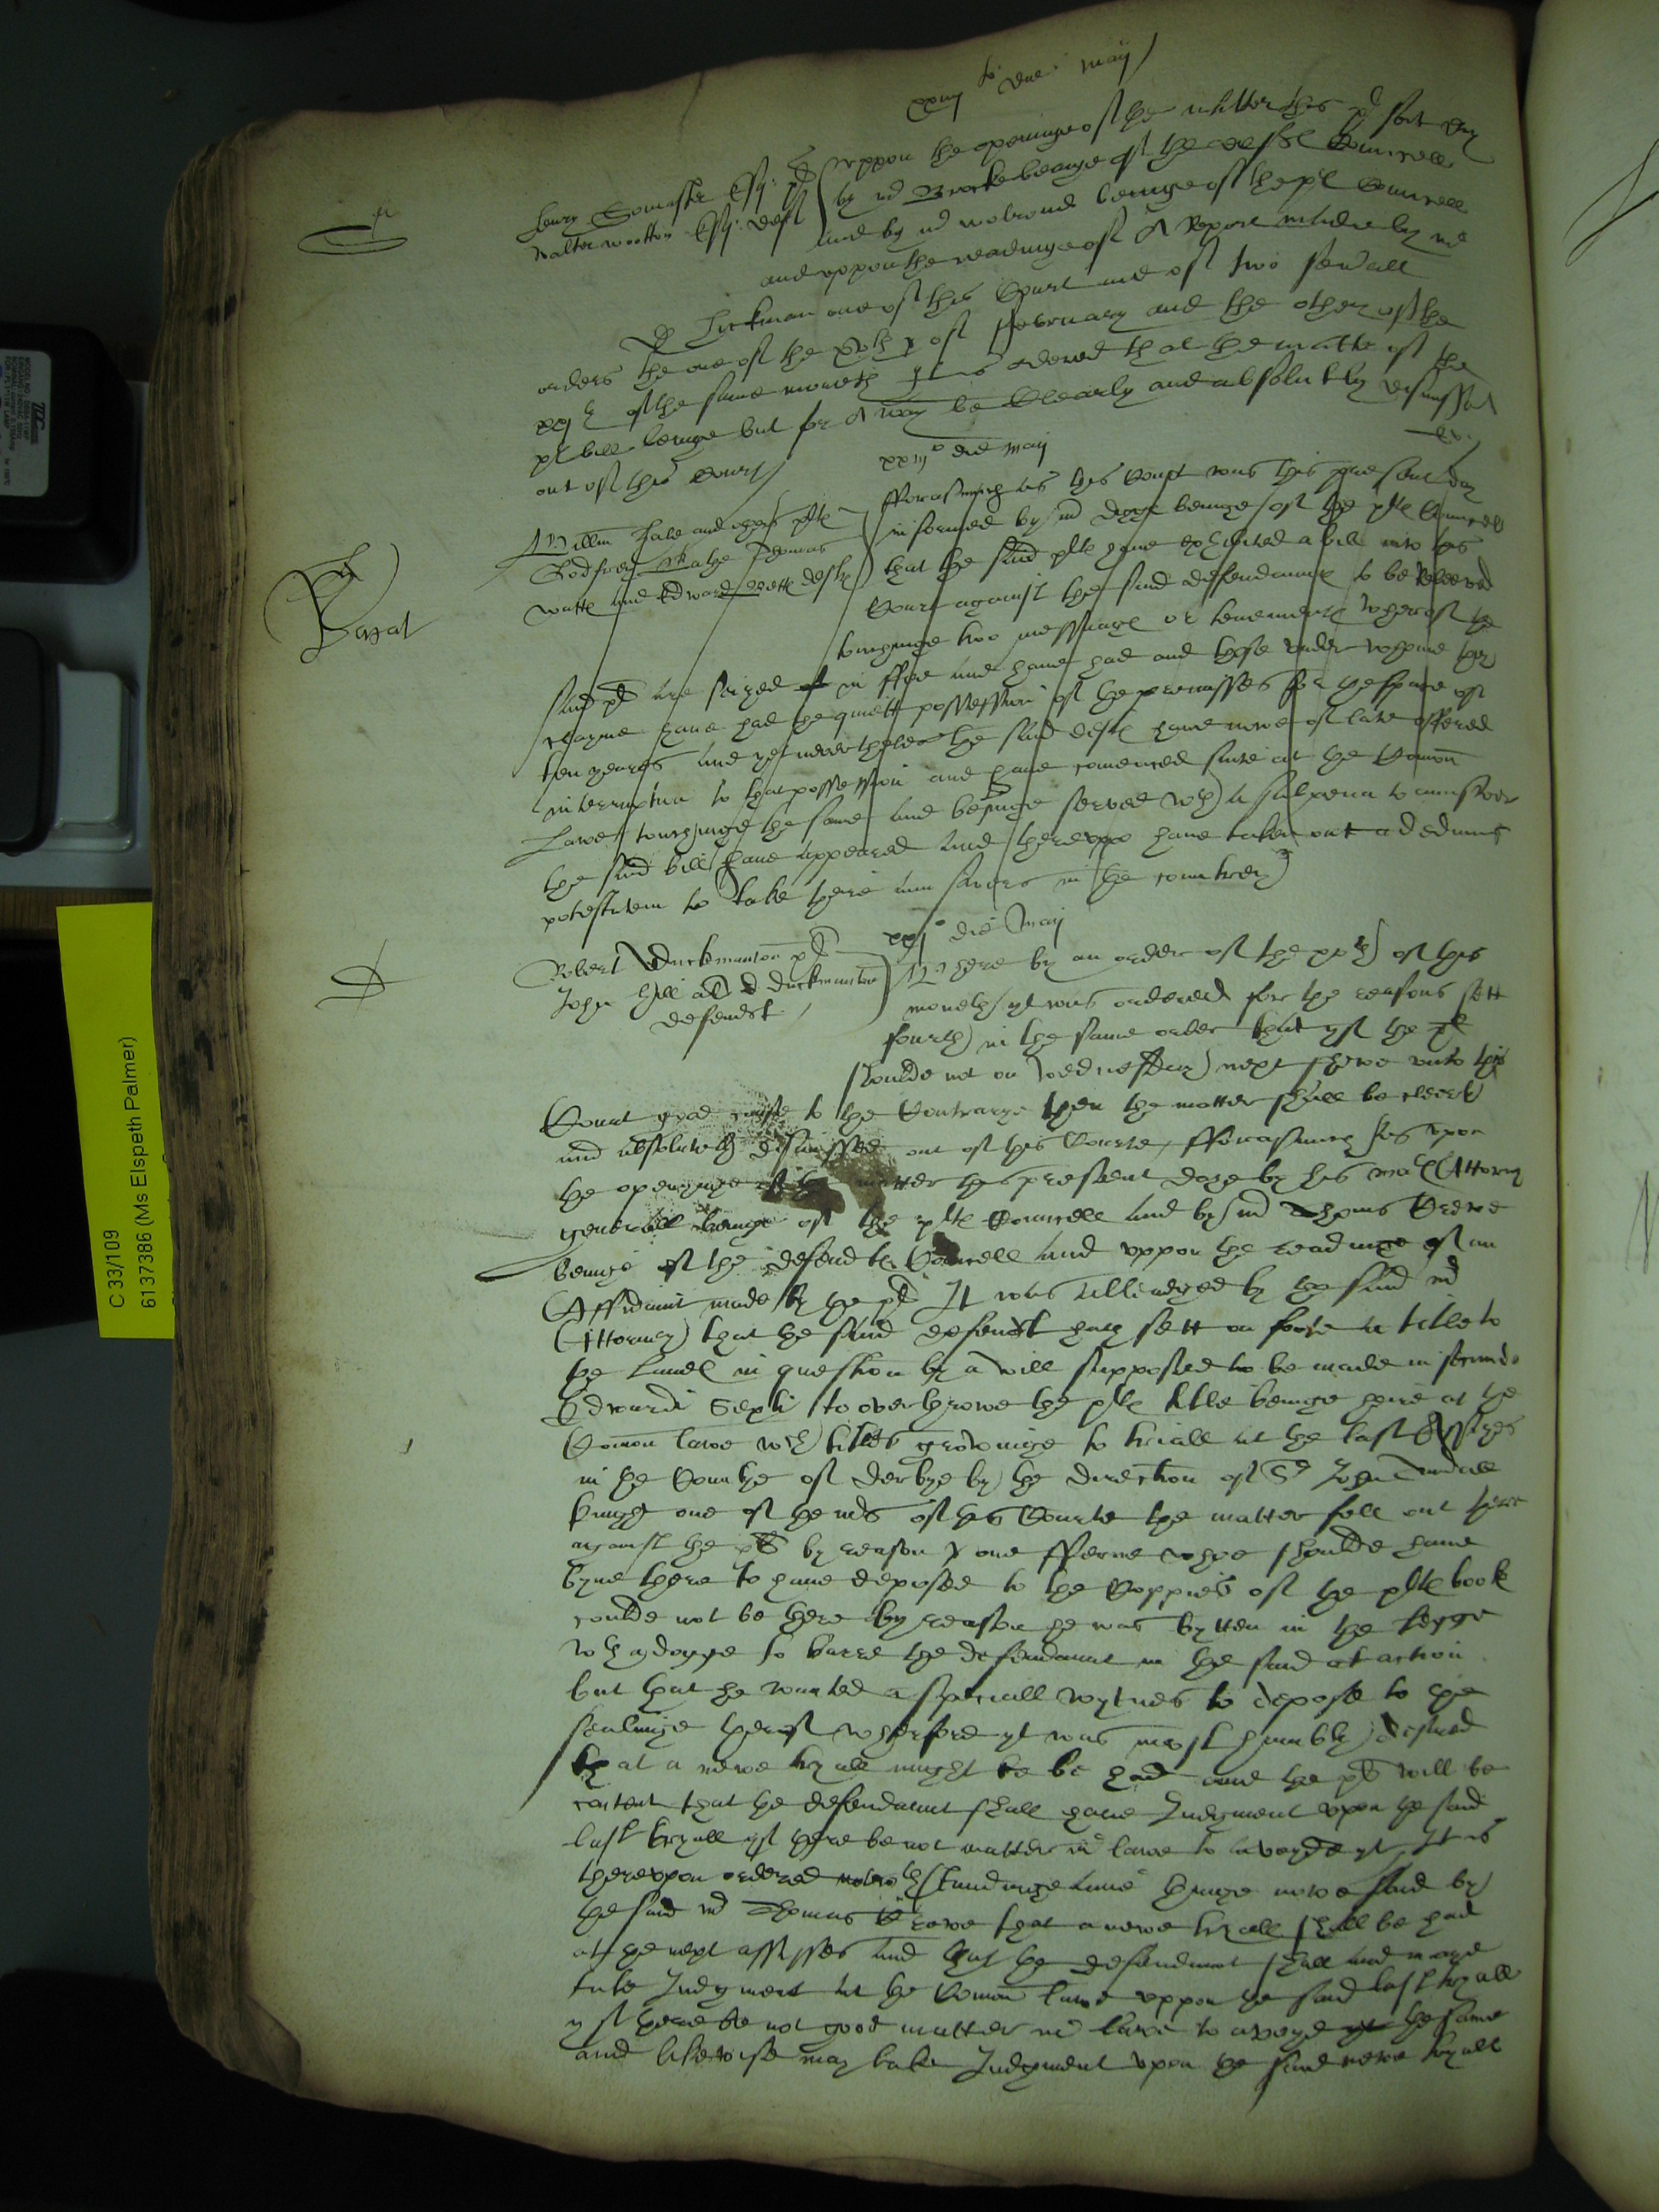 die maij
Henry Somaster Esq: pl uppon the openinge of the matter this p sent day
Walter wootton Esq: deft by mr Brocke beinge of the defts Councell
and by mr beinge of the pl Councell
and uppon the readinge of A Report made by mr
D Hickman one of this Court and of two severall
orders the one of the xvth of February and the other of the
xxj th of the same moneth yt is ordered that the matter of the
pl bill beinge but for A way be Clearly and absolutely dismissed
out of this Court
xxiijo die maij
Willm Hale and others plts fforasmuch as this Court was this present day
Godfrey Thomas informed by mr beinge of the plts Councell
watts and Edward defts that the said plts have exhibited a bill into this
Court against the said deffendaunts to be Releeved
towchinge two messuages or tenements wherof the
said pls are seized in ffee and have had and those under whome they
clayme have had the quiett possession of the premisses for the space of
ten yeares and yet neverthelesse the said defts have nowe of late offered
interruption to that possession and have comenced suite at the Comon
Lawe towchinge the same and beinge served wth a subpena to aunswer
the said bill have appeared and thereuppo have taken out a dedimus
potestatem to take theire aunsweres in the countrey
xxjo die maij
Robert Duckmanton pl Where by an order of the xvth of this
John Hill als duckmanton moneth yt was ordered for the reasons sett
defendt fourth in the same order that yf the pl
shoulde not on wednesday next shewe unto this
Court good cause to the Contrarye then the matter shall be cleerly
and absolutely dismissed out of this Courte, fforasmuch as upon
the openynge of the matter this present daye by his mats Attorny
generall beinge of the plts Councell and by mr Thoms Crewe
beinge of the defendts Councell and uppon the readinge of an
Affidavit made by the pl It was alleadged by the said mr
Attorney that the said defendt hath sett on foote a title to
the Lands in question by a will supposed to be made in secundo
Edwardi Sexti to overthrowe the plts title beinge heire at the
Comon lawe wch titles growinge to triall at the last Assizes
in the Countye of derbye by the direction of Sr John Tindall
knight one of the mrs of this Courte the matter fell out there
against the pl by reason y one fferne whoe shoulde have
byne there to have deposed to the Coppies of the plts book
coulde not be there by reason he was bytten in the legge
wth a dogge to barre the defendaunt in the said action
but that he wanted a speciall wytnes to depose to the
sealinge therof wherfore yt was most humbly desired
that a newe tryall might be had and the pl will be
content that the defendaunt shall have Judgment upon the said
last tryall yf there be not matter in lawe to avoyde yt, It is
thereupon ordered notwthstandinge anie thinge nowe said by
the said mr Thomas Crewe that a newe tryall shall be had
at the next assisses and that the defendaunt shall and maye
take Judgment at the Comon lawe uppon the said last tryall
yf there be not good matter in lawe to avoyde the same
and likewise may take Judgment upon the said newe tryall
C 33/109
6137386 (Ms Elspeth Palmer)